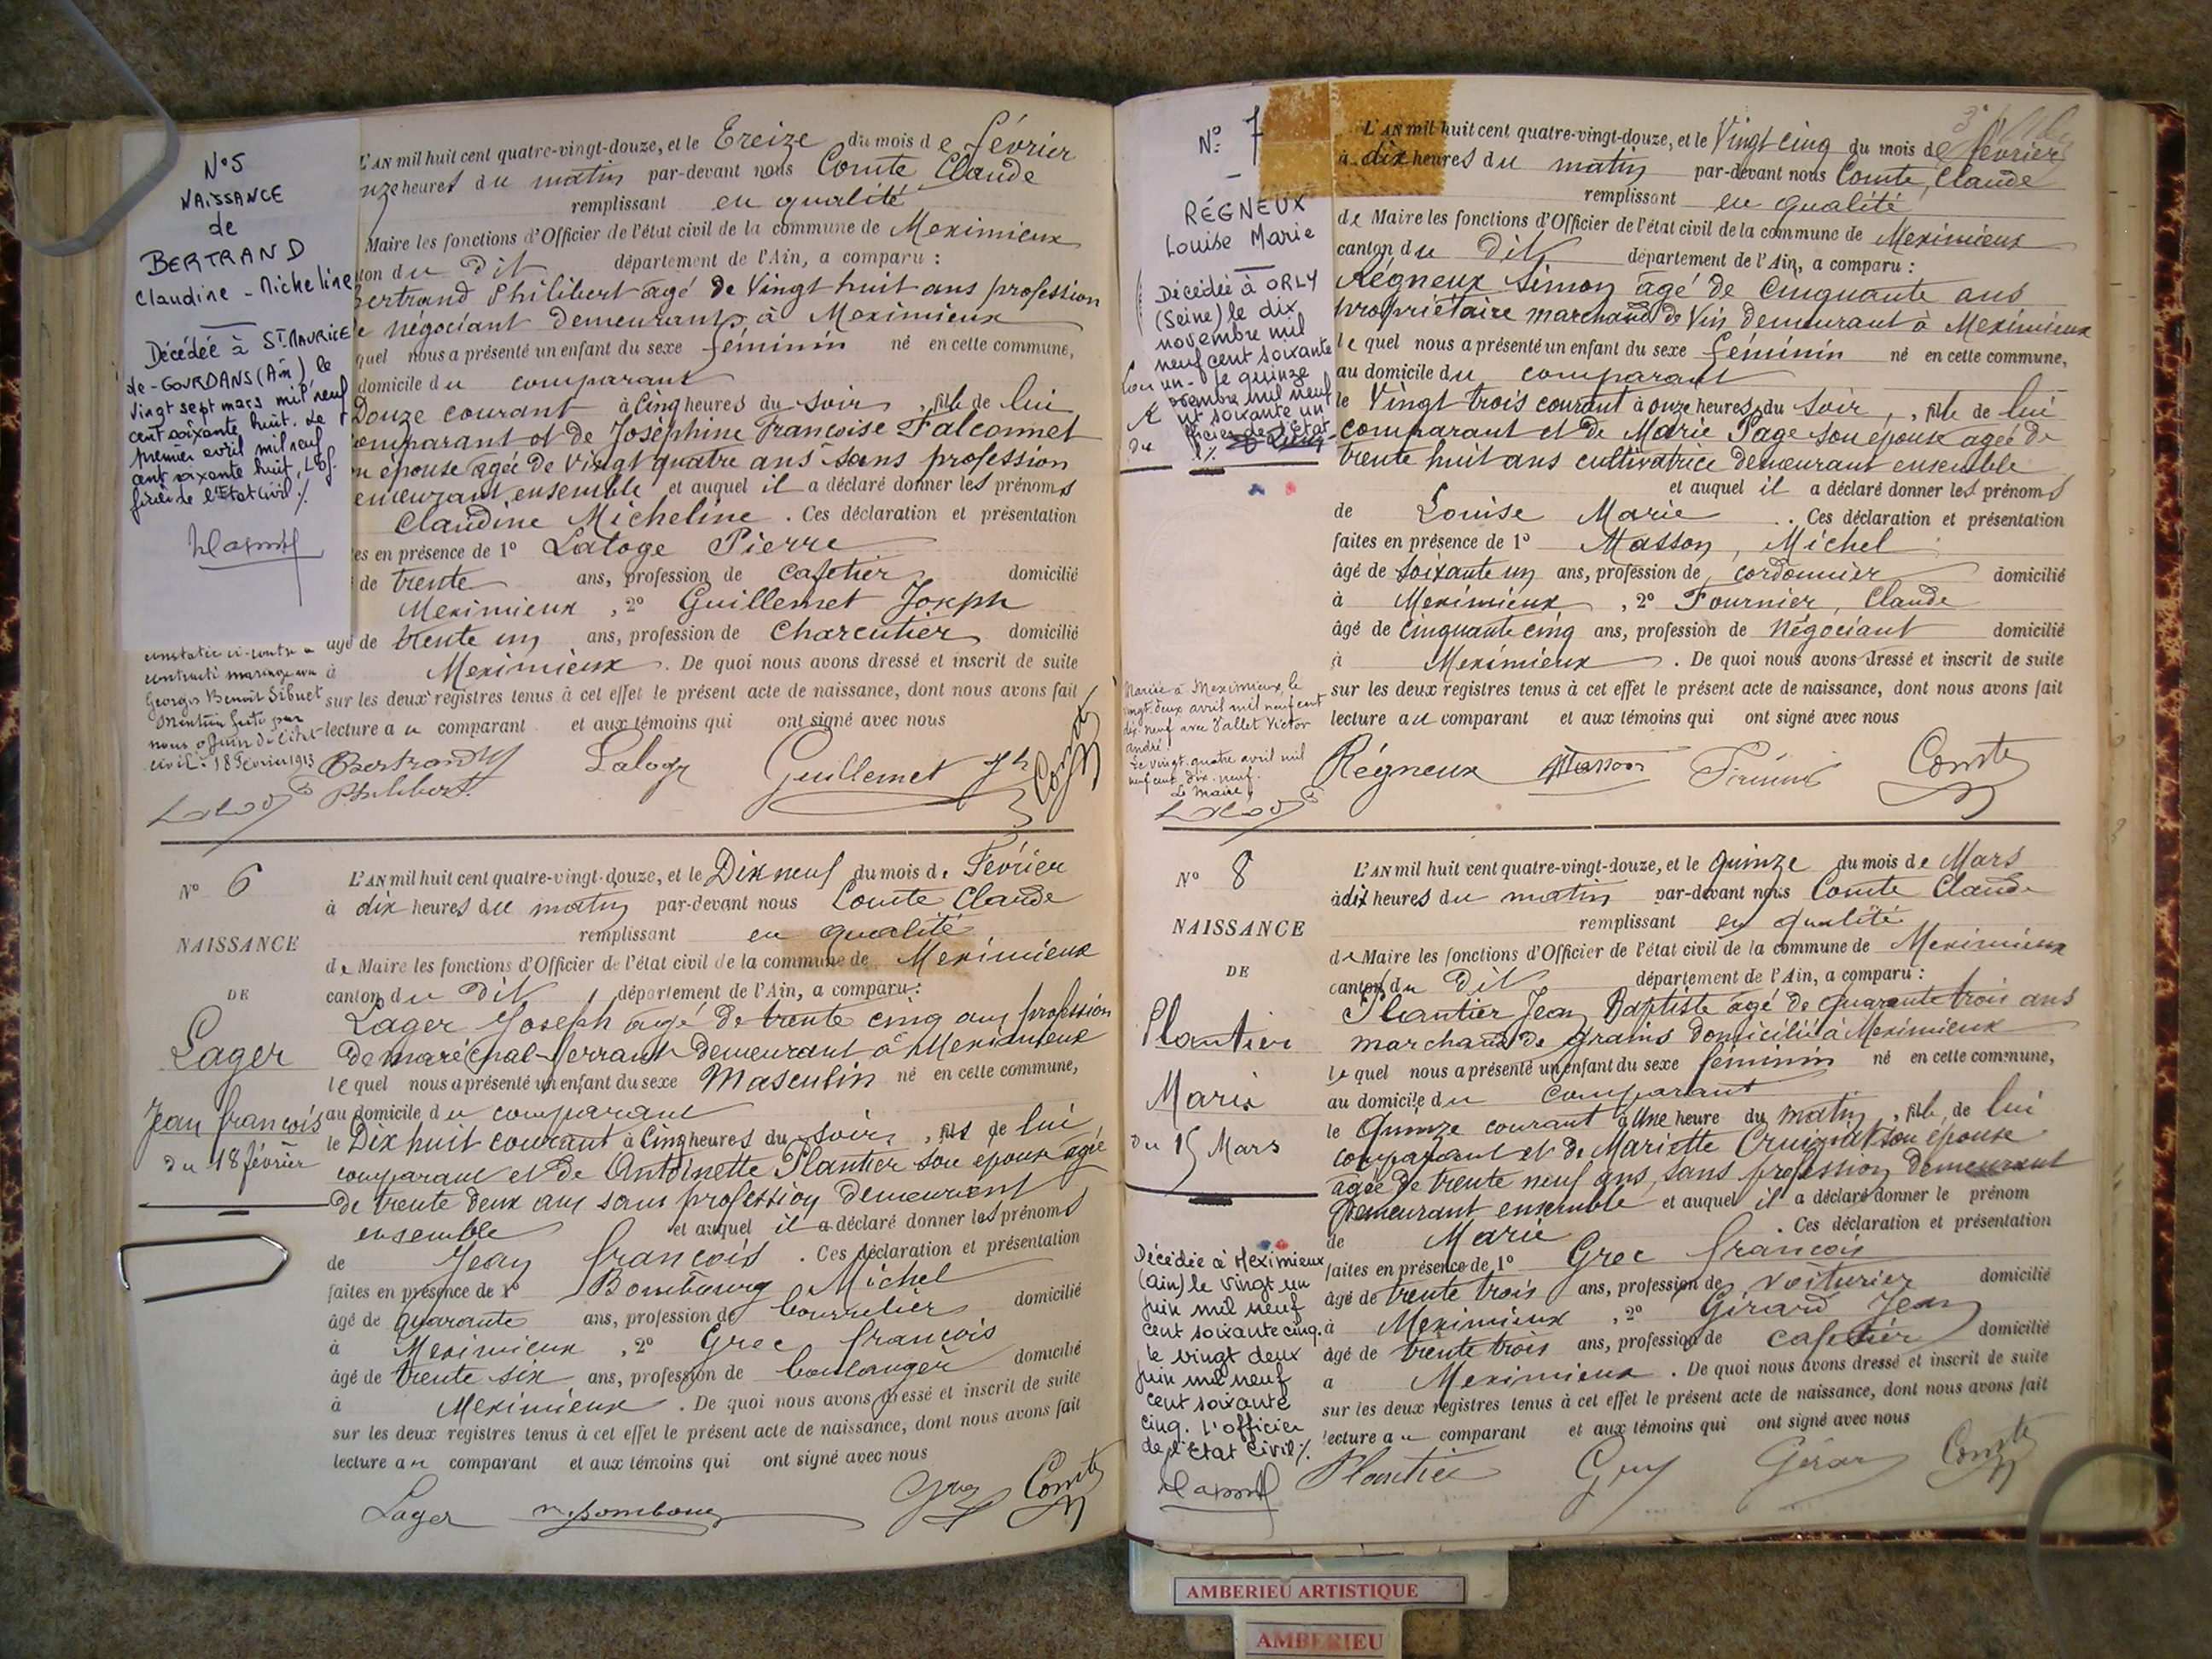 N°5
NAISSANCE
de
BERTRAND
Claudine - Micheline
Décédée à St MAURICE
de-GOURDANS (Ain) le
vingt sept mars mil neuf
cent soixante huit. Le
premier avril mil neuf
cent soixante huit, L'Of-
ficier de l'Etat civil ./.
L'AN mil huit cent quatre-vingt-douze, et le Treize du mois de février
nze heures du matin par-devant nous Comte Claude
remplissant en qualité
Maire les fonctions d'Officier de l'état civil de la commune de Meximieux
ton du dit département de l'Ain, a comparu :
Bertrand Philibert agé de Vingt huit ans profession
de négociant demeurant à Meximieux
quel nous a présenté un enfant du sexe féminin né en cette commune,
domicile du comparant
Douze courant à Cinq heures du soir, fille de lui
comparant et de Joséphine Françoise Falconnet
n épouse agée de Vingt quatre ans sans profession
emeurant ensemble et auquel il a déclaré donner les prénoms
Claudine Micheline . Ces déclaration et présentation
es en présence de 1° Laloge Pierre
de trente ans, profession de cafetier domicilié
Meximieux , 2° Guillemet Joseph
agé de trente un ans, profession de Charcutier domicilié
à Meximieux . De quoi nous avons dressé et inscrit de suite
sur les deux registres tenus à cet effet le présent acte de naissance, dont nous avons fait
lecture au comparant et aux témoins qui ont signé avec nous
constatée ci-contre a
contracté mariage avec
Georges Benoit Sibuet
Mention faite par
nous officier de l'état
civil. 18 Février 1913
Bertrand
Philibert
Laloge
Guillemet Jh
Comte
N° 6
NAISSANCE
DE
Lager
Jean françois
du 18 février
L'AN mil huit cent quatre-vingt-douze, et le Dix neuf du mois de Février
à dix heures du matin par-devant nous Comte Claude
remplissant en qualité
de Maire les fonctions d'Officier de l'état civil de la commune de Meximieux
canton du dit département de l'Ain, a comparu :
Lager Joseph agé de trente cinq ans profession
de maréchal-ferrant demeurant à Meximieux
lequel nous a présenté un enfant du sexe Masculin né en cette commune,
au domicile du comparant
le Dix huit courant à Cinq heures du soir, fils de lui
comparant et de Antoinette Plantier son épouse agée
de trente deux ans sans profession demeurant
ensemble et auquel il a déclaré donner les prénoms
de Jean françois . Ces déclaration et présentation
faites en présence de 1° Bombourg Michel
âgé de quarante ans, profession de bourrelier domicilié
à Meximieux , 2° Grec françois
âgé de trente six ans, profession de boulanger domicilié
à Meximieux . De quoi nous avons dressé et inscrit de suite
sur les deux registres tenus à cet effet le présent acte de naissance, dont nous avons fait
lecture au comparant et aux témoins qui ont signé avec nous
Lager
Comte
N° 7
RÉGNEUX
Louise Marie
Décédée à ORLY
(Seine) le dix
novembre mil
neuf cent soixante
un - le quinze
novembre mil neuf
cent soixante un
L'AN mil huit cent quatre-vingt-douze, et le Vingt cinq du mois de février
à dix heures du matin par-devant nous Comte, Claude
remplissant en qualité
de Maire les fonctions d'Officier de l'état civil de la commune de Meximieux
canton du dit département de l'Ain, a comparu :
Régneux Simon agé de Cinquante ans
propriétaire marchand de Vin demeurant à Meximieux
lequel nous a présenté un enfant du sexe féminin né en cette commune,
au domicile du comparant
le Vingt trois courant à onze heures du soir, fille de lui
comparant et de Marie Page son épouse agée de
trente huit ans cultivatrice demeurant ensemble
et auquel il a déclaré donner les prénoms
de Louise Marie . Ces déclaration et présentation
faites en présence de 1° Masson, Michel
âgé de soixante un ans, profession de cordonnier domicilié
à Meximieux , 2° Fournier, Claude
âgé de cinquante cinq ans, profession de Négociant domicilié
à Meximieux . De quoi nous avons dressé et inscrit de suite
sur les deux registres tenus à cet effet le présent acte de naissance, dont nous avons fait
lecture au comparant et aux témoins qui ont signé avec nous
Mariée à Meximieux, le
vingt deux avril mil neuf cent
dix-neuf avec Vallet Victor
andré.
Le vingt quatre avril mil
neuf cent dix-neuf.
Le Maire
Régneux Masson Comte
N° 8
NAISSANCE
DE
Plantier
Marie
du 15 Mars
L'AN mil huit cent quatre-vingt-douze, et le quinze du mois de Mars
à dix heures du matin par-devant nous Comte Claude
remplissant en qualité
de Maire les fonctions d'Officier de l'état civil de la commune de Meximieux
canton du dit département de l'Ain, a comparu :
Plantier Jean Baptiste agé de quarante trois ans
marchand de grains domicilié à Meximieux
lequel nous a présenté un enfant du sexe féminin né en cette commune,
au domicile du comparant
le Quinze courant à Une heure du matin, fille de lui
comparant et de Mariette son épouse
agée de trente neuf ans, sans profession demeurant
demeurant ensemble et auquel il a déclaré donner le prénom
de Marie . Ces déclaration et présentation
faites en présence de 1° Grec françois
âgé de trente trois ans, profession de voiturier domicilié
à Meximieux , 2° Girard Jean
âgé de trente trois ans, profession de cafetier domicilié
a Meximieux . De quoi nous avons dressé et inscrit de suite
sur les deux registres tenus à cet effet le présent acte de naissance, dont nous avons fait
lecture au comparant et aux témoins qui ont signé avec nous
Décédée à Meximieux
(Ain) le vingt un
juin mil neuf
cent soixante cinq.
le vingt deux
juin mil neuf
cent soixante
cinq. L'officier
de l'Etat Civil ./.
Plantier Comte
AMBERIEU ARTISTIQUE
AMBERIEU